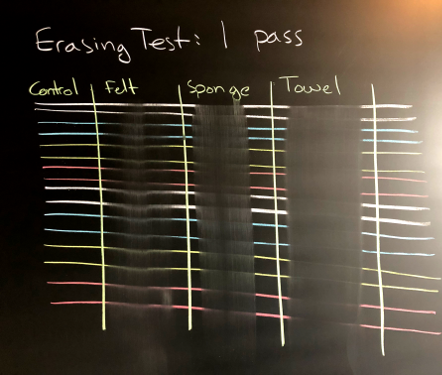 Erasing Test: 1 pass
Control Felt Sponge Towel